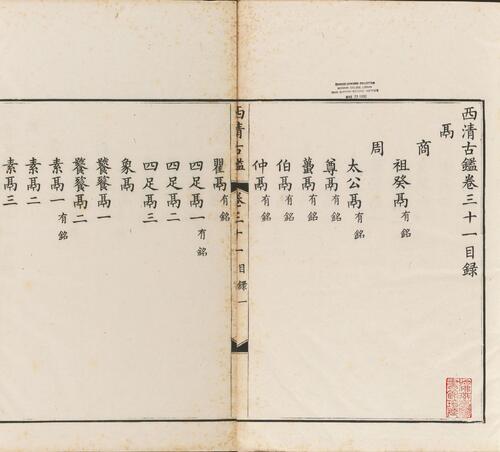 西清古鑑卷三十一目録
鬲
商
祖癸鬲有銘
周
太公鬲有銘
尊鬲有銘
蠆鬲有銘
伯鬲有銘
仲鬲有銘
西清古鑑 卷三十一 目録 一
瞿鬲有銘
四足鬲一有銘
四足鬲二
四足鬲三
象鬲
饕餮鬲一
饕餮鬲二
素鬲一有銘
素鬲二
素鬲三